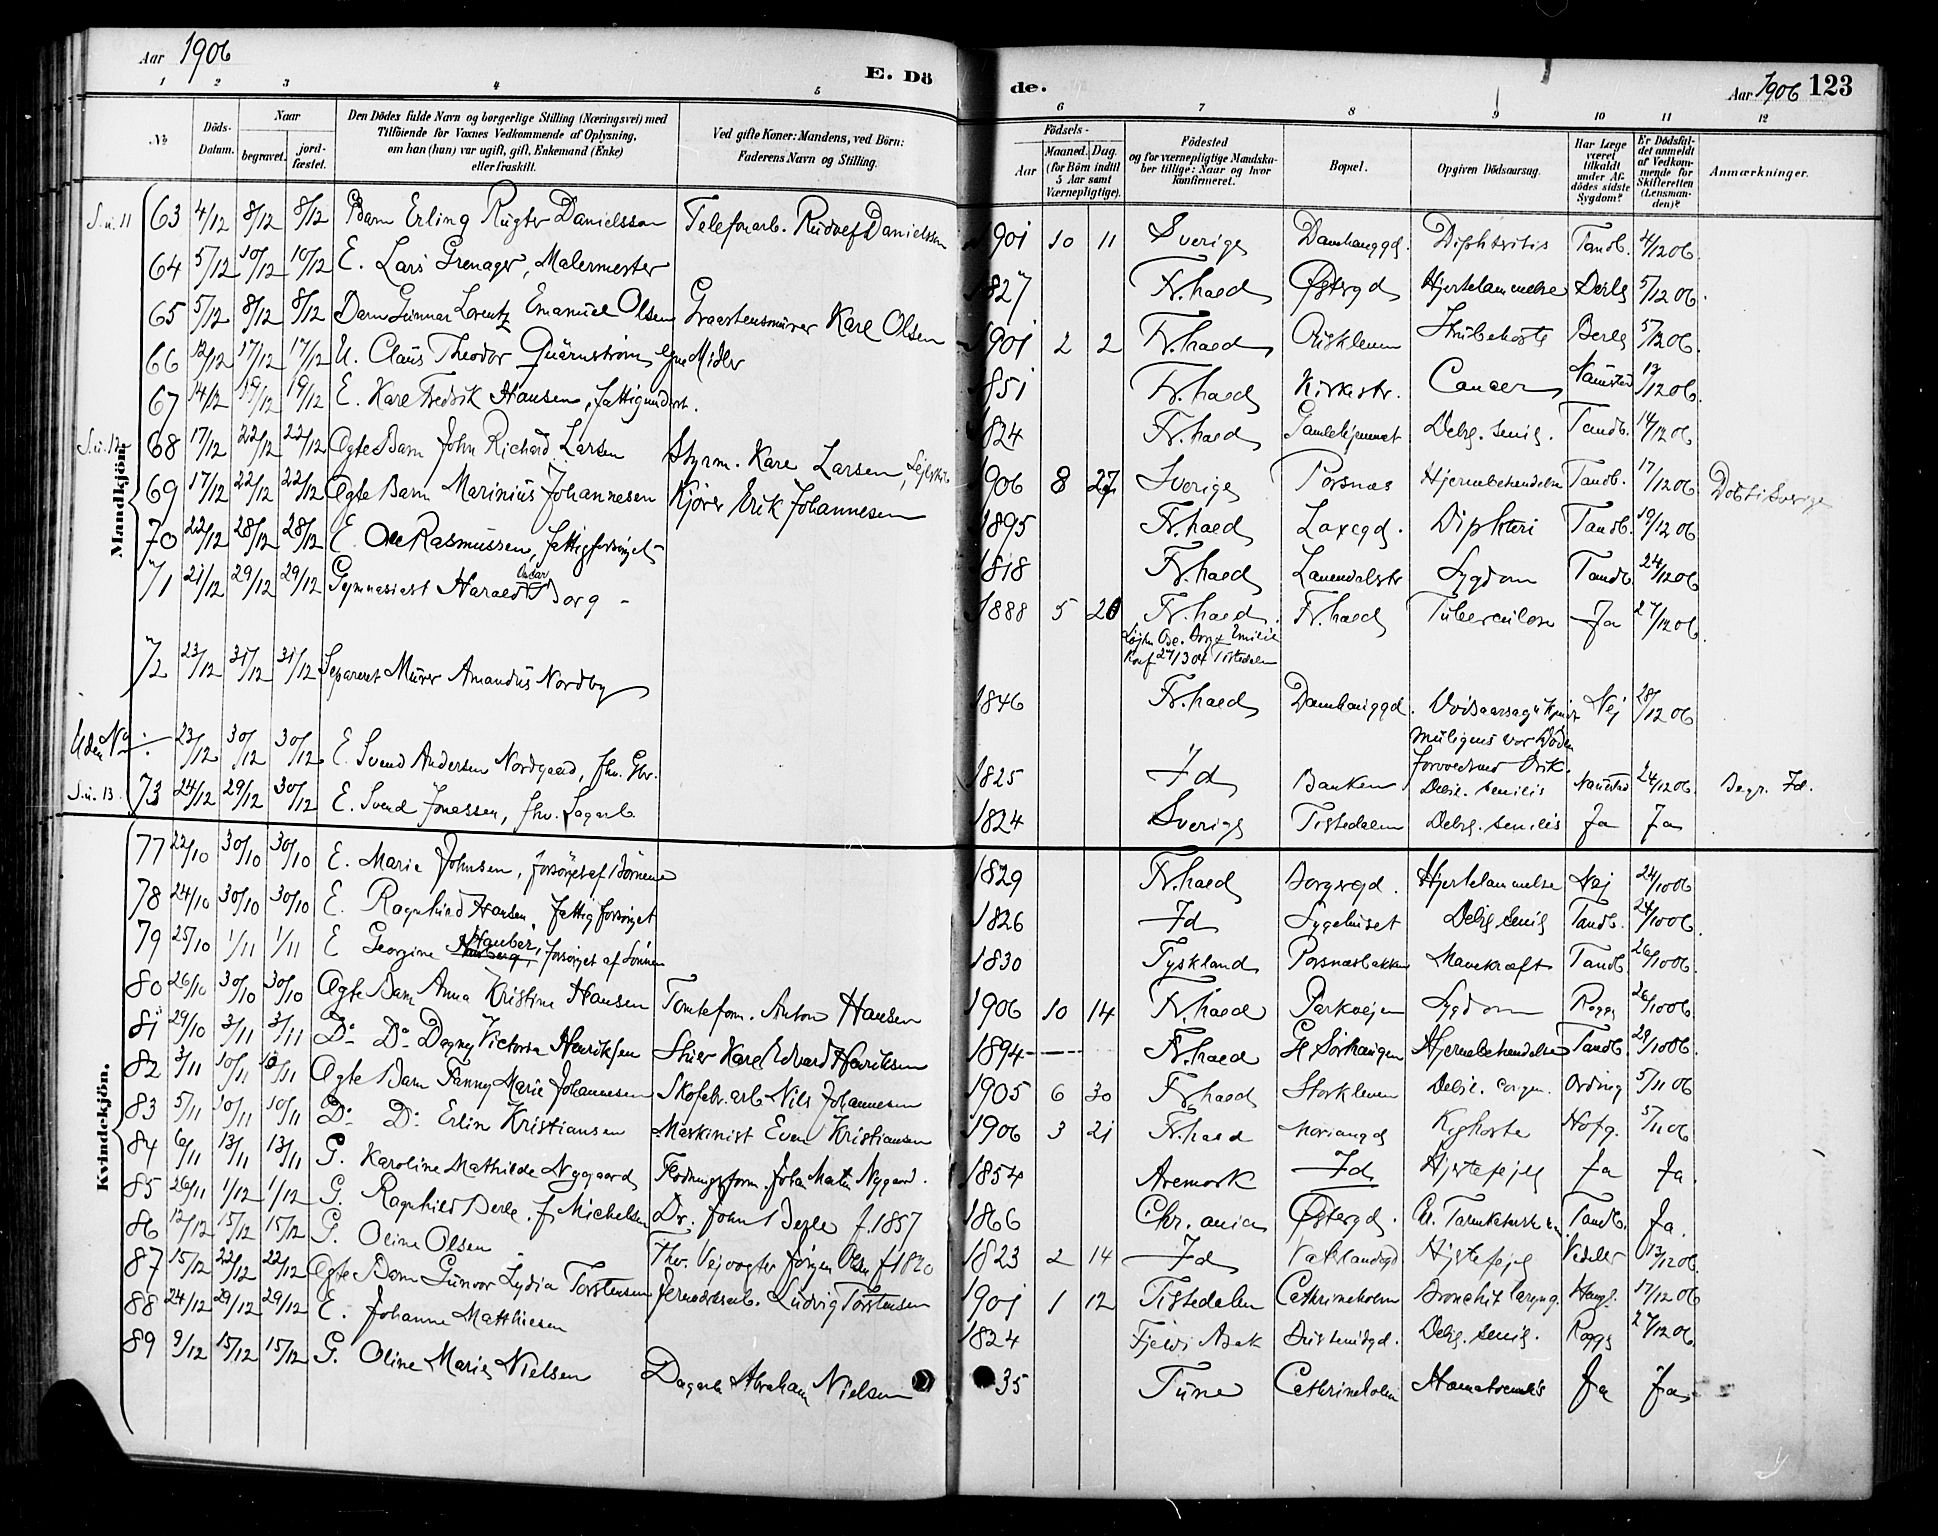 Aar 1906
E. Dö
de.
Aar 1906 123
1 2 3 4 5 6 7 8 9 10 11 12
No
Döds-Datum.
Naar
begravet.
jord-fæstet.
Den Dödes fulde Navn og borgerlige Stilling (Næringsvei) med
Tilföiende for Voxnes Vedkommende af Oplysning,
om han (hun) var ugift, gift, Enkemand (Enke)
eller fraskilt.
Ved gifte Koner: Mandens, ved Börn:
Faderens Navn og Stilling.
Födsels-
Aar
Maaned. Dag.
(for Börn indtil
5 Aar samt
Værnepligtige).
Födested
og for værnepligtige Mandska-
ber tillige: Naar og hvor
Konfirmeret.
Bopæl.
Opgiven Dödsaarsag.
Har Læge
været
tilkaldt
under Af-
dödes sidste
Sygdom?
Er Dödsfal-
det anmeldt
af Vedkom-
mende for
Skifteretten
(Lensman-
den)?
Anmærkninger.
Mandkjön.
S. u. 11 63 4/12 8/12 8/12 Barn Erling Danielsson Telefonarb. Danielsson 1901 10 11 Sverige Damhauggd. Diphteritis Tandb. 4/12 06.
64 5/12 10/12 10/12 E. Lars Grenager, Malermester 1827 Fr.hald Østergd Hjertelammelse Derle 5/12 06.
65 5/12 8/12 8/12 Barn Gunnar Lorentz Emanuel Olsen Graastensmurer Karl Olsen 1901 2 2 Fr.hald Riskleven Strubehoste 5/12 06.
66 12/12 17/12 17/12 U. Claus Theodor Quärnström, egne Midler 1851 Fr.hald Kirkestr. Cancer 12/12 06.
67 14/12 19/12 19/12 E. Karl Fredrik Hansen, fattigunderst. 1824 Fr.hald Debil. senil. Tandb. 14/12 06
S. u. 12 68 17/12 22/12 22/12 Ægte Barn John Richard Larsen Styrm. Karl Larsen, 1906 8 27 Sverige Torsnæs Hjernebetændelse Tandb. 17/12 06 Döbt i Sverige
69 17/12 22/12 22/12 Ægte Barn Marinius Johannesen Kjörer Erik Johannesen 1895 Fr.hald Laxegd. Diphteri Tandb. 19/12 06
70 22/12 28/12 28/12 E. Ole Rasmussen, fattigforsörget 1818 Fr.hald Sygdom Tandb. 24/12 06
71 21/12 29/12 29/12 Gymnasiast Harald Oscar Borg - 1888 5 20 Fr.hald. Fr.hald Tuberculose Ja 27/12 06.
Tistedalen
72 23/12 31/12 31/12 Separeret Murer Amandus Nordby 1846 Fr.hald Damhauggd. Nej 28/12 06
muligens var Döden
Uden No 23/12 30/12 30/12 E. Svend Andersen Nordgaard, fhv. Gbr. 1825 Id Banken Debil. senilis 24/12 06. Begr. Id.
S. u. 13. 73 24/12 29/12 30/12 E. Svend Jonassen, fhv. Sagarb. 1824 Sverige Tistedalen Debil. senilis Ja Ja
Kvindekjön.
77 22/10 30/10 30/10 E. Marie Johnsen, forsörget af Börnene 1829 Fr.hald Borgergd. Hjertelammelse Nej 24/10 06
78 24/10 30/10 30/10 E. Ragnhild Hansen, fattigforsörget 1826 Id Sygehuset Debil. senil Tandb. 24/10 06
79 25/10 1/11 1/11 E Georgine Hauber, forsörget af Sönnen 1830 Tyskland Torsnæsbakken Mavekræft Tandb 26/10 06
80 26/10 30/10 30/10 Ægte Barn Anna Kristine Hansen Tomteform. Anton Hansen 1906 10 14 Fr.hald Parkvejen Sygdom Rogge 26/10 06
81 29/10 3/11 3/11 Do Do Dagny Victoria Henriksen Karl Edvard Henriksen 1894 Fr.hald Hjernebetændelse Tandb. 29/10 06.
82 3/11 10/11 10/11 Ægte Barn Fanny Marie Johannesen Skofabr.arb. Nils Johannesen 1905 6 30 Fr.hald Storkleven Debil. congen. Ording 5/11 06
83 5/11 10/11 10/11 Do Do Erlin Kristiansen Maskinist Even Kristiansen 1906 3 21 Fr.hald Kighoste Hofg. 5/11 06
84 6/11 13/11 13/11 G. Karoline Mathilde Nygaard Flödningsform. Johan Martin Nygaard. 1854 Aremark Id Hjertefejl Ja Ja.
85 26/11 1/12 1/12 G. Ragnhild Derle f. Michelsen Dr. John Derle f. 1857 1866 Chr.ania Østergd. Tandb. Ja.
86 12/12 15/12 15/12 G. Oline Olsen Fhv. Vejvogter Jörgen Olsen f 1820 1823 2 14 Id Hjertefejl Vedeler 13/12 06
87 15/12 22/12 22/12 Ægte Barn Gunvor Lydia Torstensen Jernverksarb. Ludvig Torstensen 1901 1 12 Tistedalen Cathrineholm Bronchit laryng. 17/12 06
88 24/12 29/12 29/12 E. Johanne Matthiesen 1824 Debil. senil. Rogge 27/12 06
89 9/12 15/12 15/12 G. Oline Marie Nielsen Dagarb. Abraham Nielsen 35 Tune Cathrineholm Ja Ja